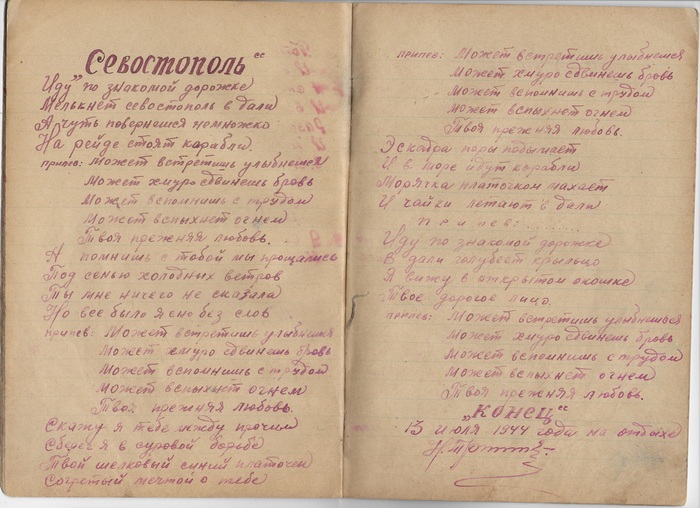 Севостополь“
Иду” по знакомой дорожке
Мелькнет севостополь в дали
А чуть повернешся немножко
На рейде стоят карабли.
припев: Может встретишь улыбнешся
Может хмуро сдвинешь бровь
Может вспомнишь с трудом
Может вспыхнет огнем
Твоя прежняя любовь.
А помнишь с тобой мы прощались
Под сенью холодных ветров
Ты мне ничего не сказала
Но все было ясно без слов
припев: Может встретишь улыбнешся
Может хмуро сдвинешь бровь
Может вспомнишь с трудом
Может вспыхнет огнем
Твоя прежняя любовь.
Скажу я тебе между прочим
Сберег я в суровой борьбе
Твой шелковый синий платочек
Согретый мечтой о тебе
припев: Может встретишь улыбнешся
Может хмуро сдвинешь бровь
Может вспомнишь с трудом
Может вспыхнет огнем
Твоя прежняя любовь.
Эскадра пары подымает
И в море идут карабли
Морячка платочком махает
И чайки летают в дали
Припев:
Иду по знакомой дорожке
В дали голубеет крыльцо
Я вижу в открытом окошке
Твое дорогое лицо.
припев: Может встретишь улыбнешся
Может хмуро сдвинешь бровь
Может вспомнишь с трудом
Может вспыхнет огнем
Твоя прежняя любовь.
„Конец“
13 июля 1944 года на отдыхе